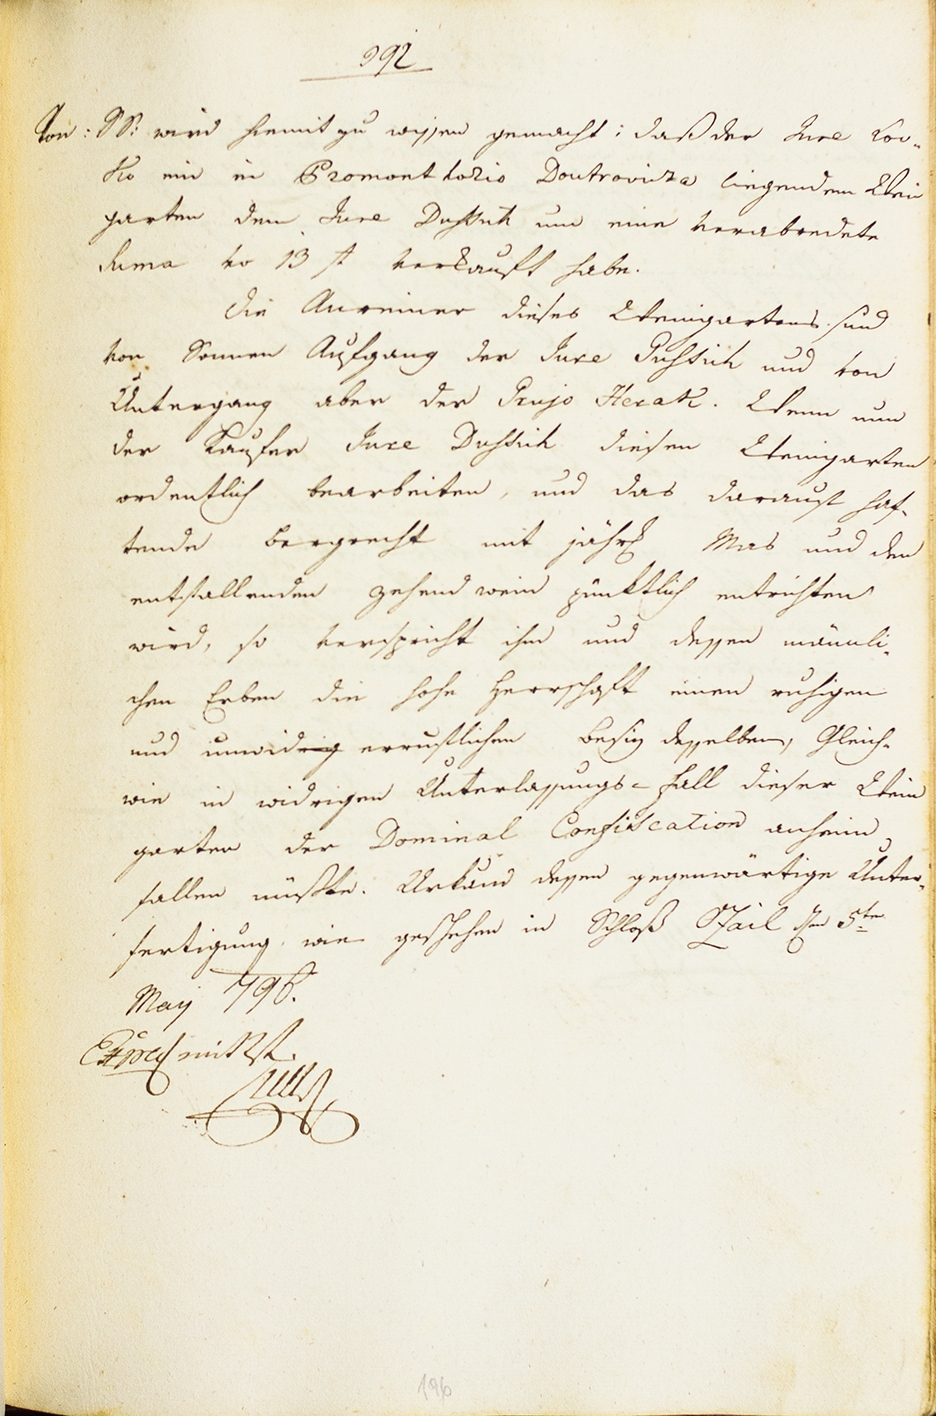 392
Von: SS: wird hiemit zu wissen gemacht: daß der Jure Kov-
ko ein in Promonthorio Doutrovicza liegenden Wein
garten dem Jure Dustich um eine verabredete
Suma vo 13 f verkauft habe.
Die Anreiner dieses Weingartens sind
von Sonnen Aufgang der Jure Pustich und von
Untergang aber der Prujo Herak. Wenn nun
der Kaufer Jure Dustich diesen Weingarten
ordentlich bearbeiten, und das darauf haf-
tende Bergrecht mit jährl Mas und den
entfallenden zehend wein pünktlich entrichten
wird, so verspricht ihm und dessen mänli-
chen Erben die hohe Herrschaft einen ruhigen
und unwidrig errustlichen Besiz desselben, Gleich-
wie in widrigen Unterlassungs-Fall dieser Wein
garten der Dominal Confiscation anheim
fallen müßte. Urkund dessen gegenwärtige Unter-
fertigung. wie geschehen in Schloß den 5te
May 798.